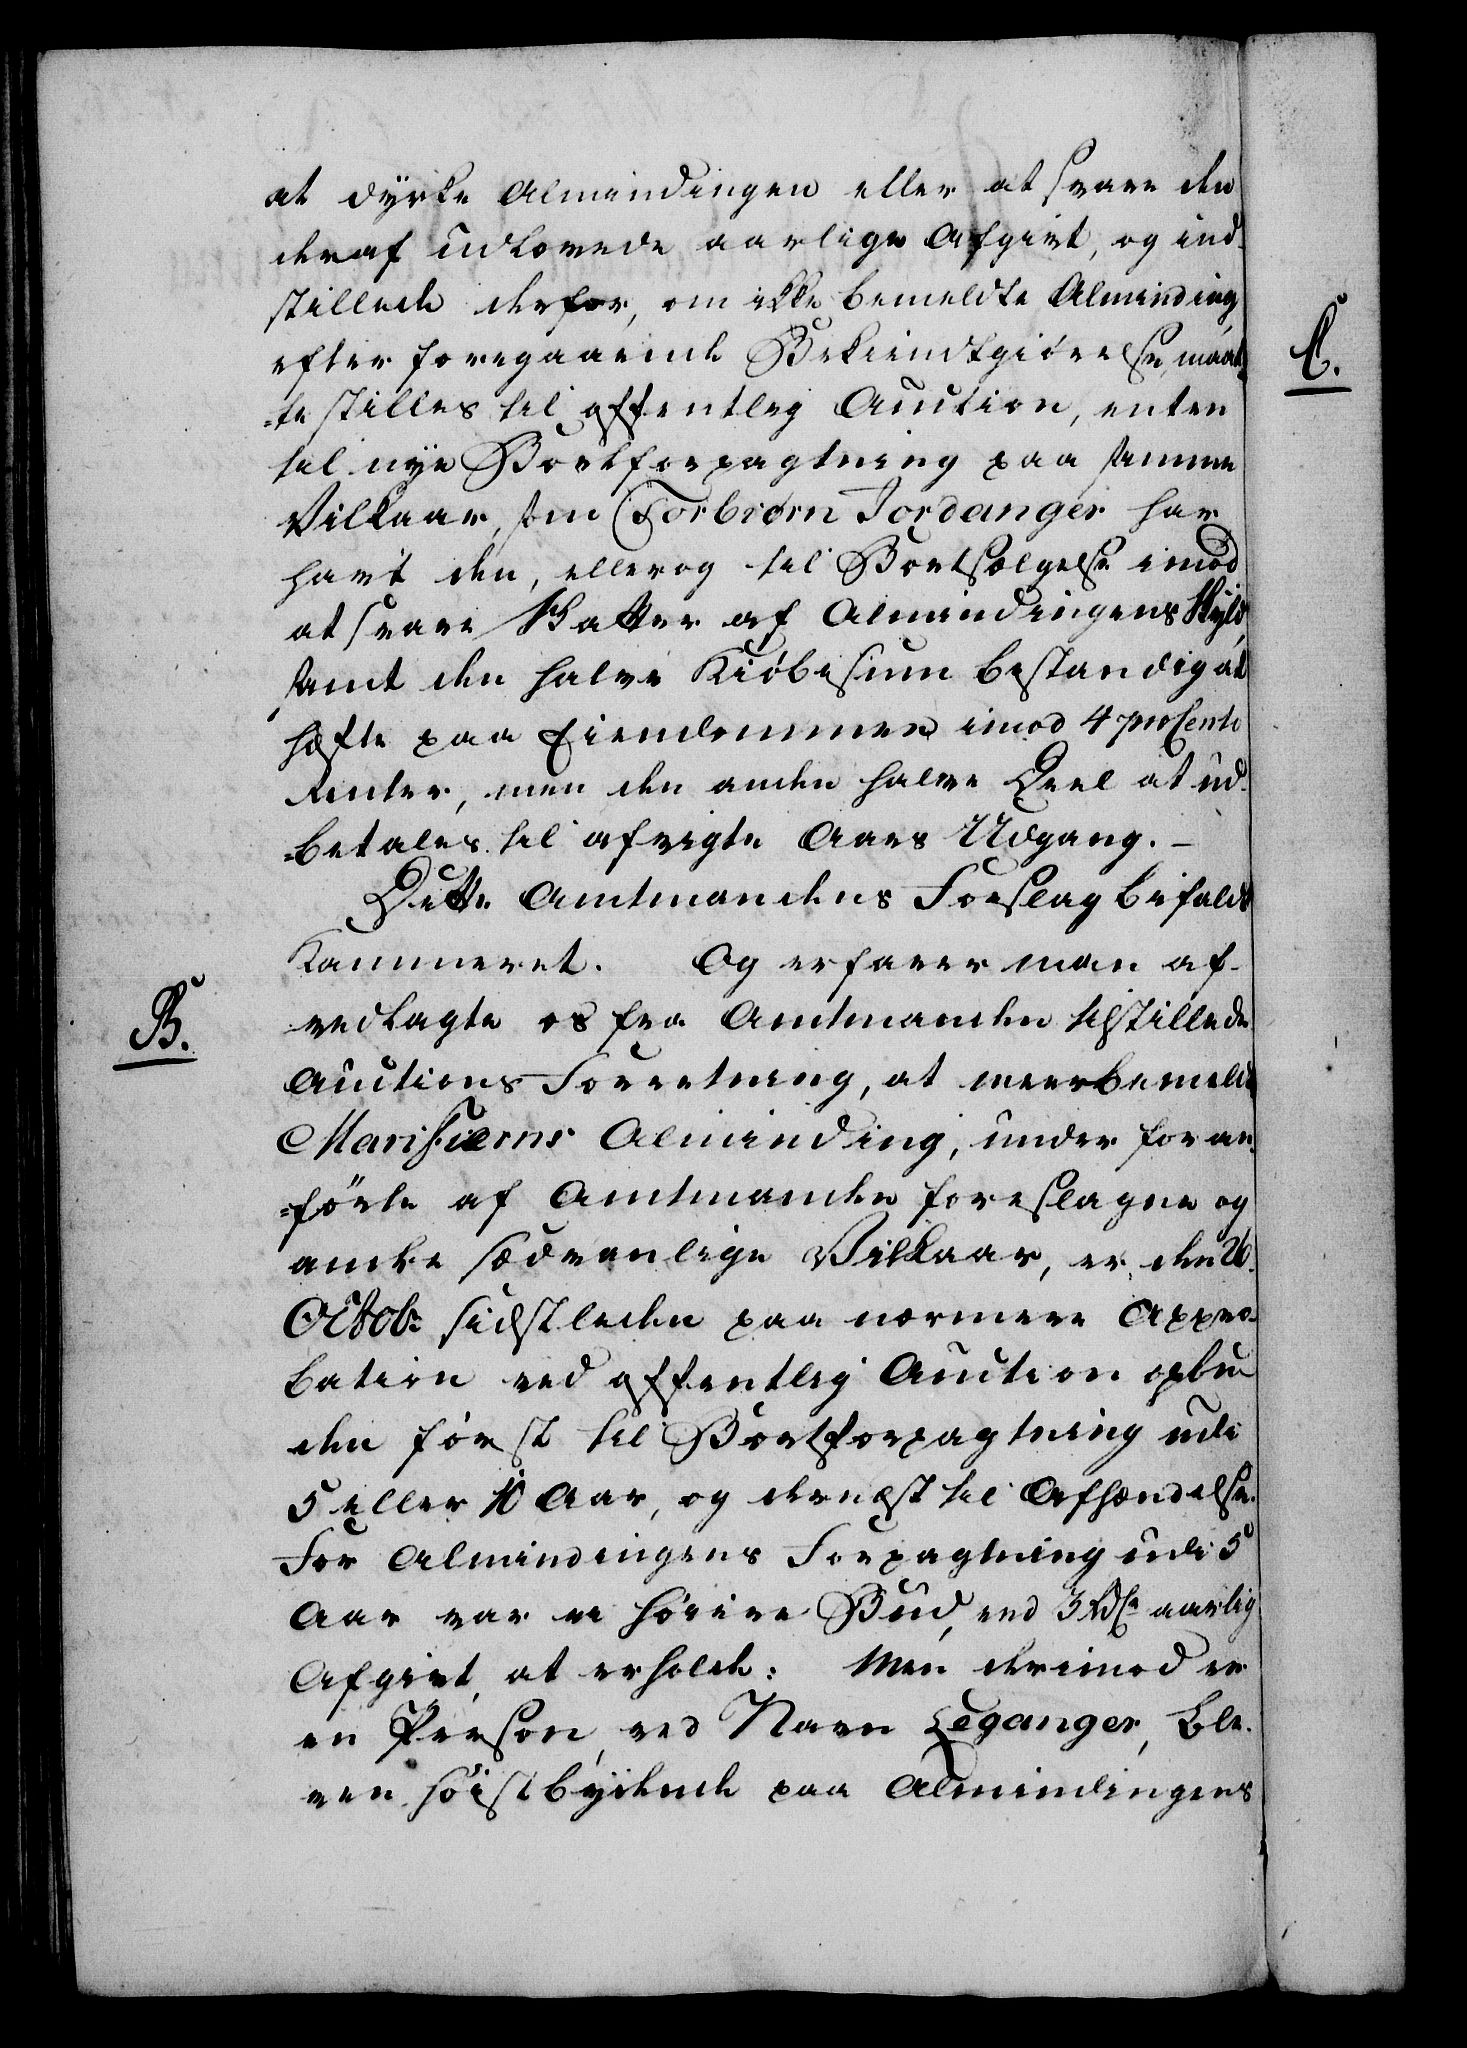 at dyrke Almindingen eller at svare den
deraf udlovede aarlige Afgivt, og ind-
stillede derfor, om ikke bemeldte Alminding
efter foregaaende Bekiendtgiørelse, maat-
=te stilles til offentlig Auction, enten
til nye Bortforpagtning paa samme
Vilkaar, som Torbiørn Jordanger har
havt den, eller og til Bortsælgelse imod
at svare Skatter af Almindingens Skyld,
samt den halve Kiøbesum bestandig at
hæfte paa Eiendommen imod 4 proCento
Renter, men den anden halve Deel at ud-
=betales til afvigte Aars Udgang. –
Dette Amtmandens Forslag bifaldt
Kammeret. Og erfarer man af
B.
vedlagte os fra Amtmanden tilstillede
Auctions-Forretning, at meerbemeldte
Marifierns Alminding, under foran-
=førte af Amtmanden foreslagne og
andre sædvanlige Vilkaar, er den 26.
Octob: sidstleden paa nærmere Appro-
bation ved offentlig Auction opbu-
den først til Bortforpagtning udi
5 eller 10 Aar, og dernæst til Afhændelse.
For Almindingens Forpagtning udi 5
Aar var ei høiere Bud, end 3 Rdlr aarlig
Afgivt, at erholde: Men derimod er
en Person, ved Navn Leganger, ble-
ven høistbydende paa Almindingens
C.